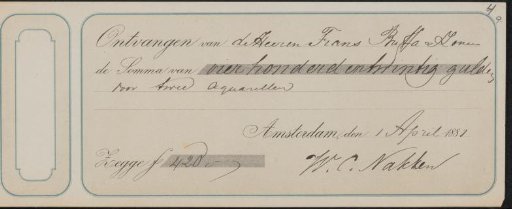 4
Ontvangen van de Heeren Frans Buffa & Zonen
de Somma van vier honderd en twintig gulden
voor twee aquarellen
Amsterdam, den 1 April 1881
Zegge f 420
W. C. Nakken